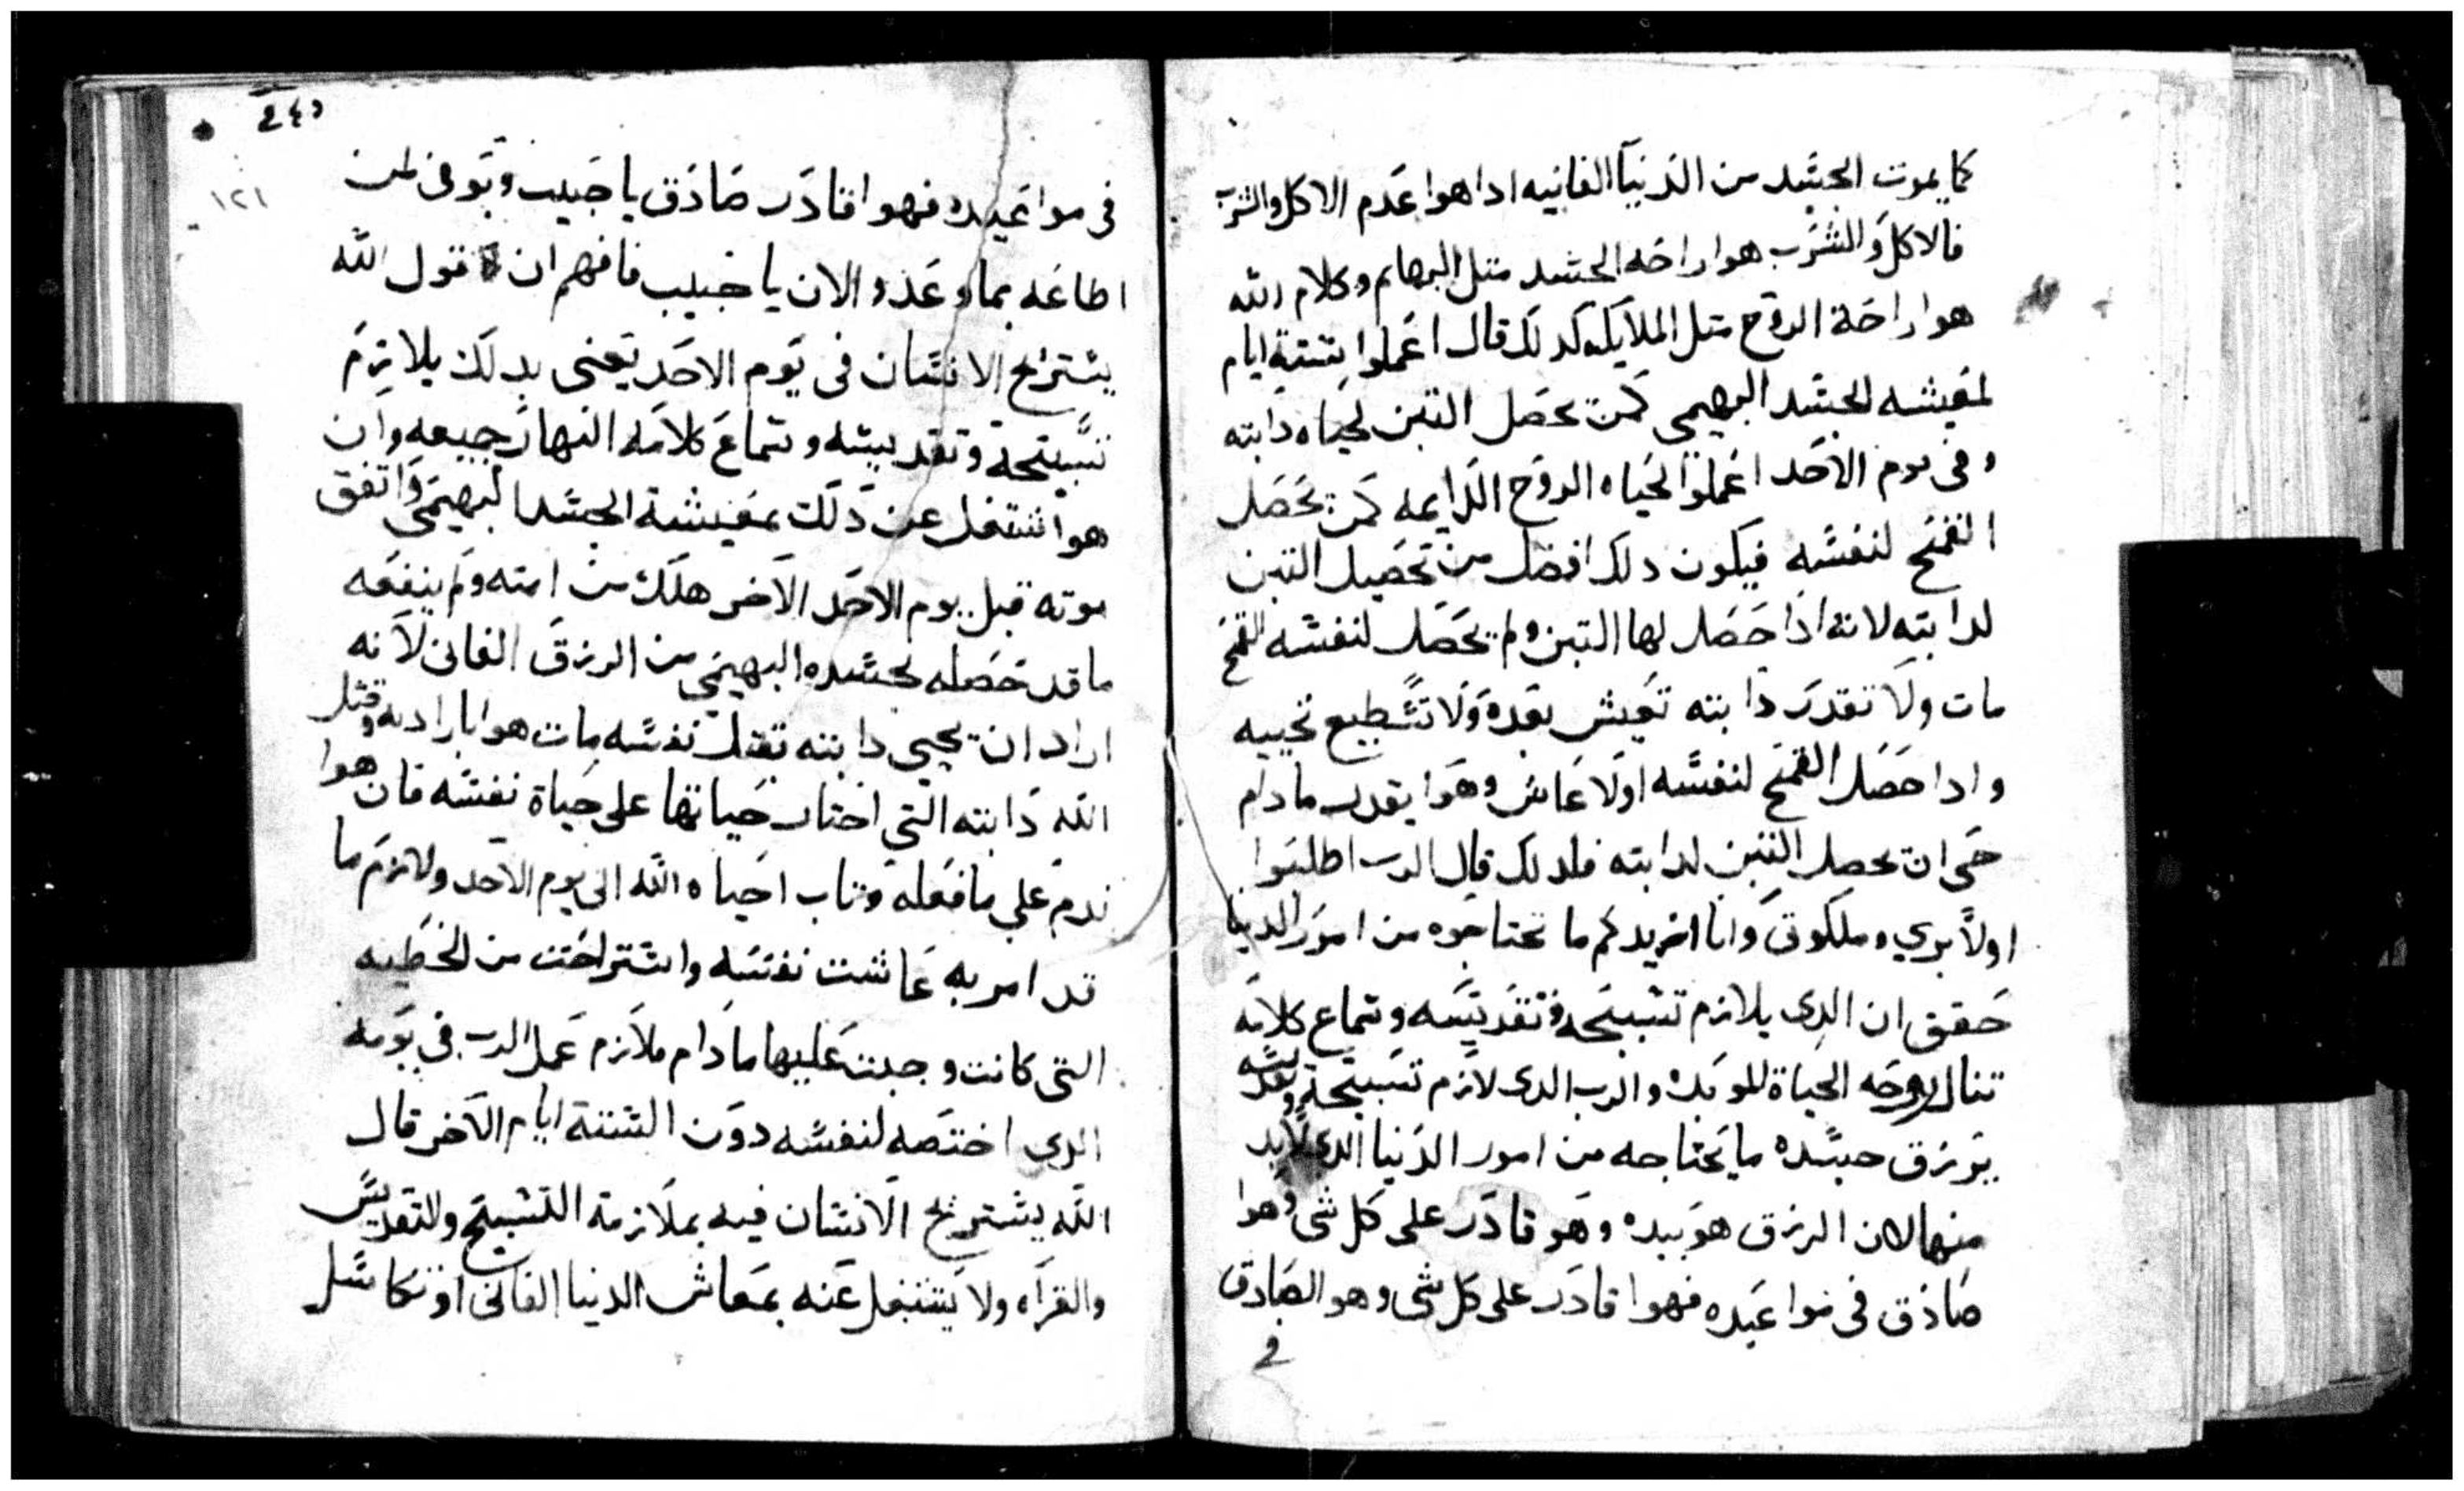 كما يموت الجسد من الدنيا الفانيه ادا هوا عدم الاكل والشرب
فالاكل والشرب هوا راحه الجسد متل البهايم وكلام الله
هوا راحة الروح متل الملايكه كدلك قال اعملوا ستة ايام
لمعيشه الجسد البهيمي كمن يحصل التبن لحياه دابته
وفي يوم الاحد اعملوا لحياه الروح الدايمه كمن يحصل
القمح لنفسه فيكون دلك افضل من تحصيل التبن
لدابته لانه اذا حصل لها التبن ولم يحصل لنفسه القمح
مات ولا تقدر دابته تعيش بعده ولا تسطيع تحييه
وادا حصل القمح لنفسه اولا عاش وهوا يقدر ما دام
حي ان يحصل التبن لدابته فلدلك قال الرب اطلبوا
اولا بري وملكوتي وانا ازيدكم ما تحتاجوه من امور الدنيا
حقق ان الدي يلازم تسبيحه وتقديسه وسماع كلامه
تنال روحه الحياة الموبده والرب الدي لازم تسبيحه وتقديسه
يرزق جسده ما يحتاجه من امور الدنيا الدي لابد
منها لان الرزق هو بيده وهو قادر على كل شي وهوا
صادق في مواعيده فهوا قادر على كل شي وهو الصادق
في
245
١٢١
في مواعيده فهوا قادر صادق يا حبيب وتوفي لمن
اطاعه بما وعد والان يا حبيب فافهم ان قول الله
يستريح الانسان في يوم الاحد يعني بدلك يلازم
تسبيحة وتقديسه وسماع كلامه النهار جميعه وان
هوا اشتغل عن دلك بمعيشة الجسد البهيمي واتفق
موته قبل يوم الاحد الاخر هلك من امته ولم ينفعه
ما قد حصله لجسده البهيمي من الرزق الفاني لانه
اراد ان يحيي دابته بقتل نفسه مات هوا بارادته وقتل
الله دابته التي اختار حياتها على حياة نفسه فان هوا
ندم على ما فعله وتاب احياه الله الى يوم الاحد ولازم ما
قد امر به عاشت نفسه واستراحت من الخطيه
التي كانت وجبت عليها ما دام ملازم عمل الرب في يومه
الدي اختصه لنفسه دون الستة ايام الاخر قال
الله يستريح الانسان فيه بملازمة التسبيح والتقديس
والقراه ولا يشتغل عنه بمعاش الدنيا الفاني او تكاسل